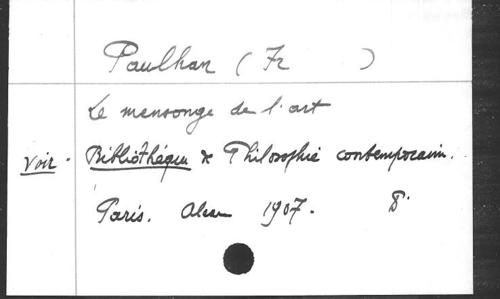 Paulhan (Fr )
Le mensonge de l'art
Voir. Bibliothéque de Philosophie contemporain.
Paris. Alcan 1907. 8°